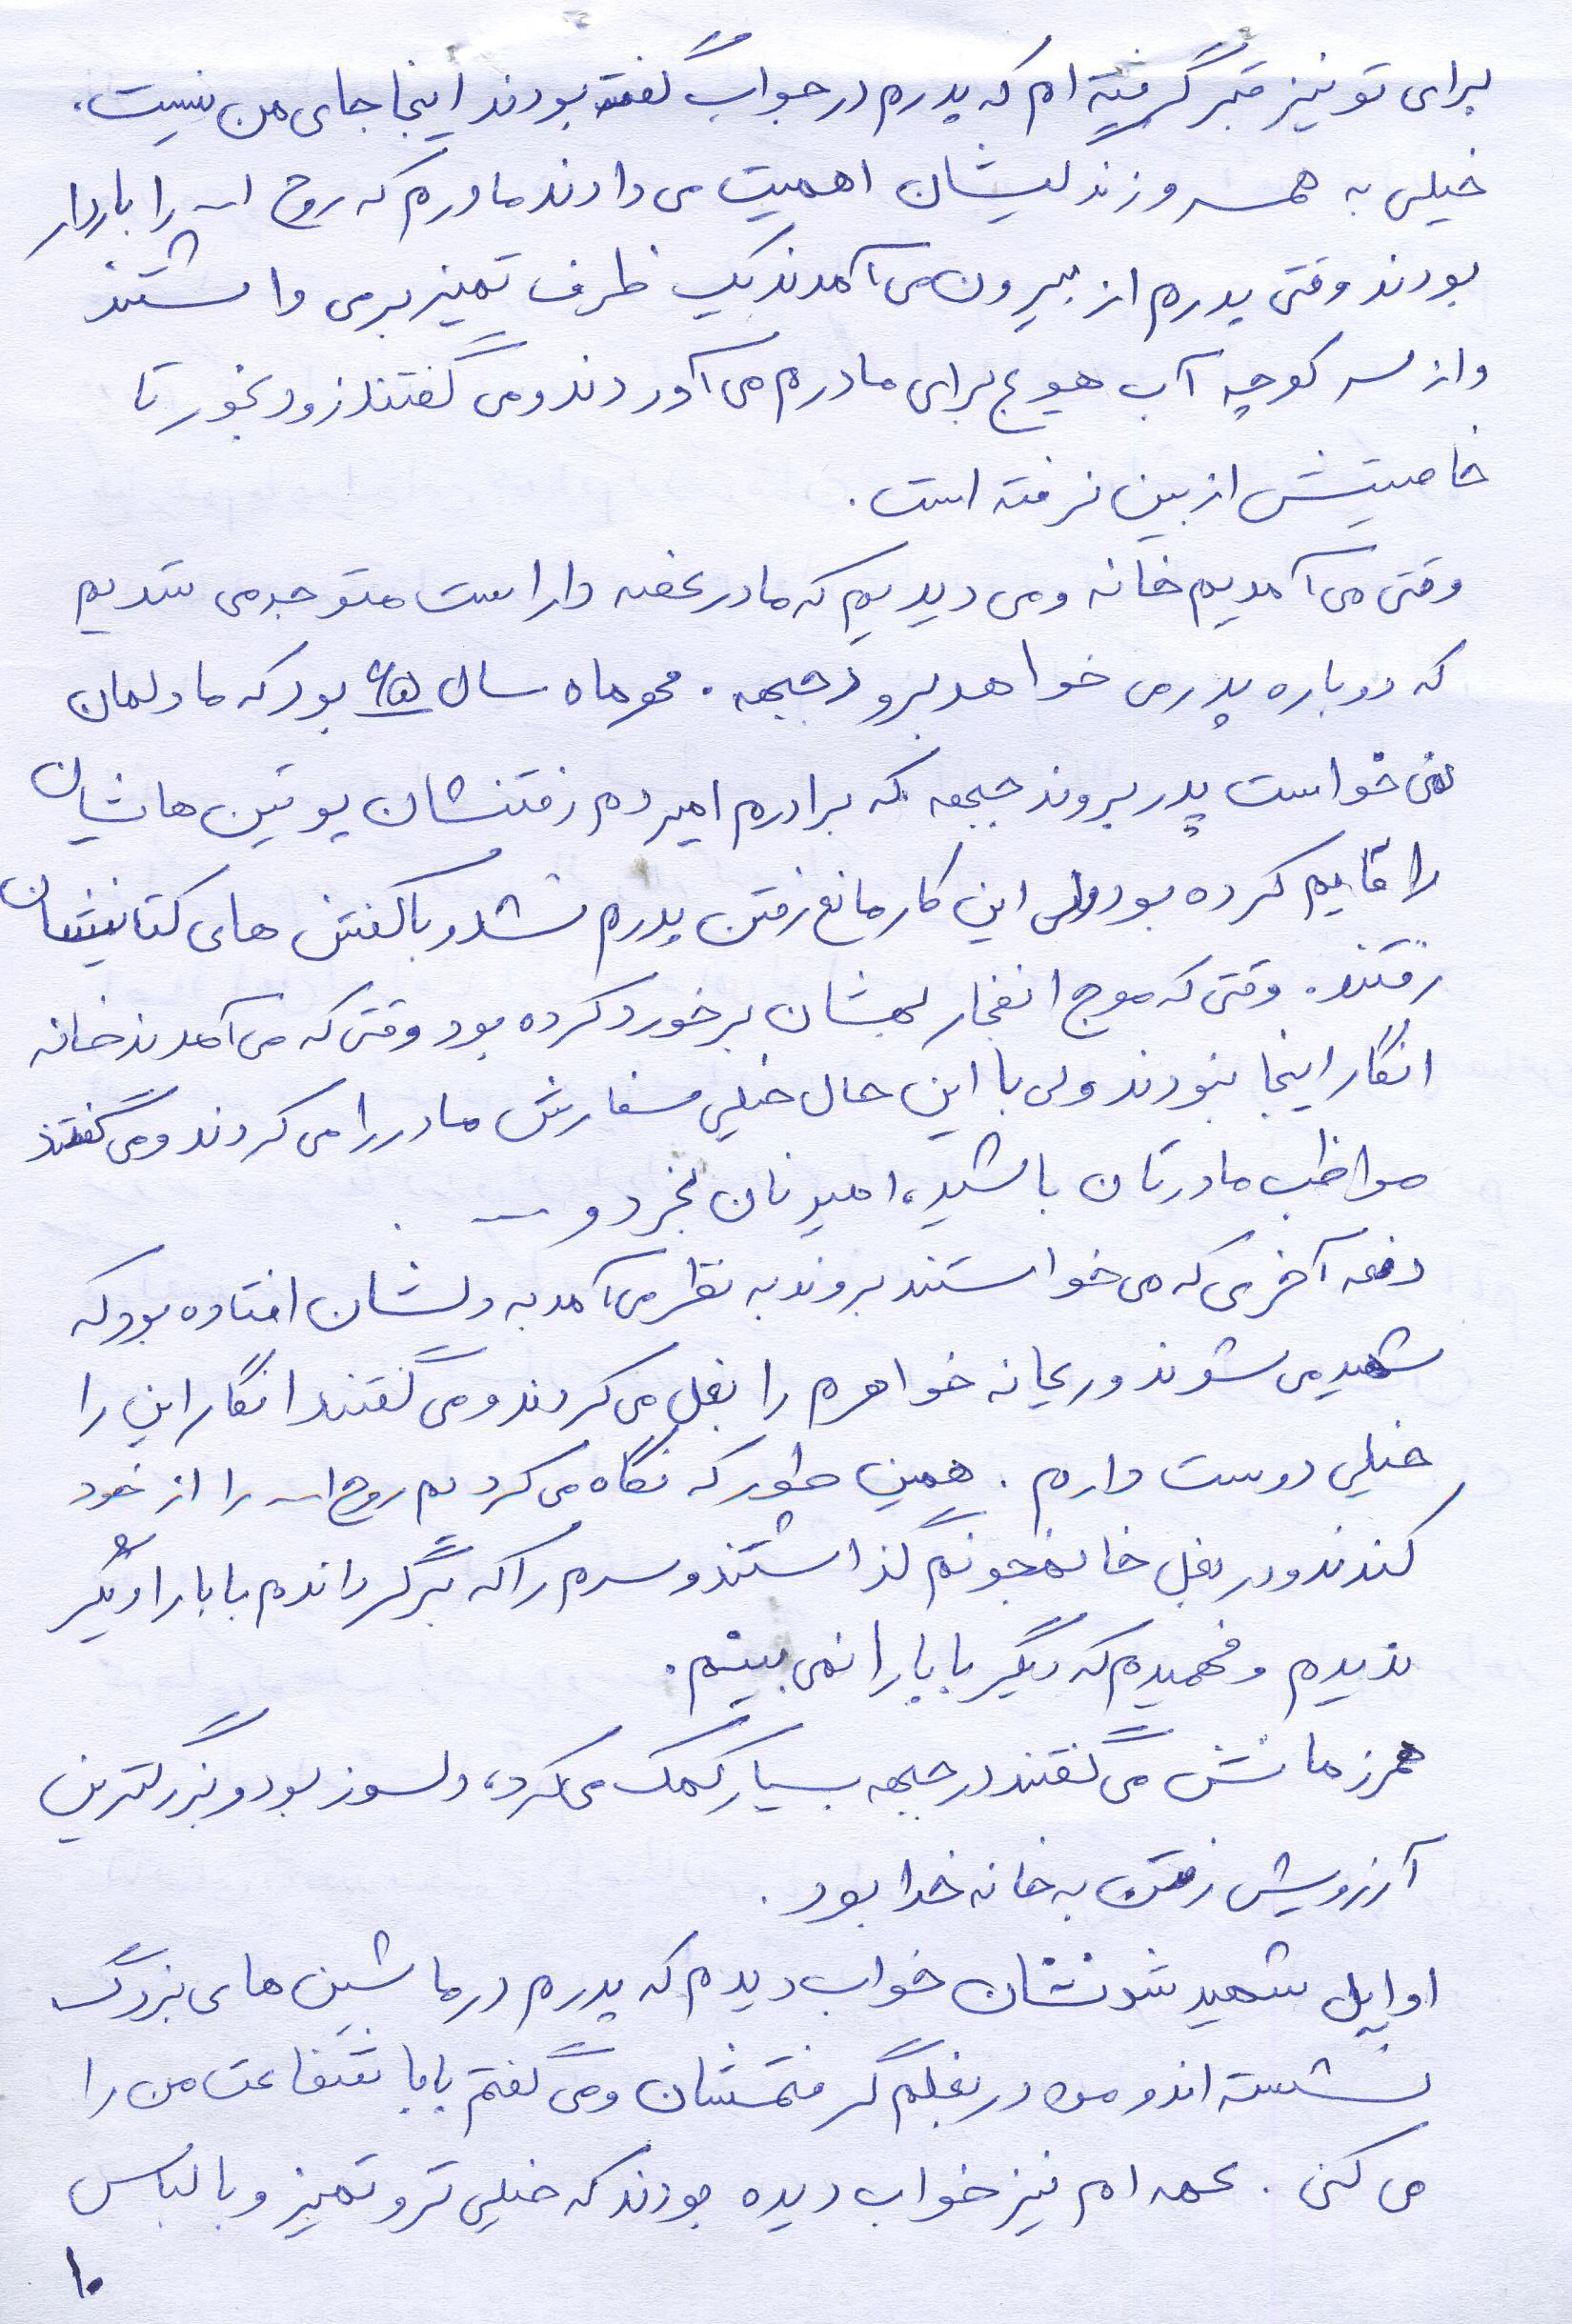 برای تو نیز قبر گرفته ام که پدرم در جواب گفته بودند اینجا جای من نیست.
خیلی به همسر و زندگیشان اهمیت می دادند مادرم که روح ا... را باردار
بودند وقتی پدرم از بیرون می آمدند یک ظرف تمیز برمی داشتند
و از سر کوچه آب هویج برای مادرم می آوردند و می گفتند زود بخور تا
خاصیتش از بین نرفته است.
وقتی می آمدیم خانه و می دیدیم که مادر غصه دار است متوجه می شدیم
که دوباره پدر می خواهد برود جبهه. محرماه سال ۶۵ بود که ما دلمان
نمی خواست پدر بروند جبهه که برادرم امیر دم رفتنشان پوتین هایشان
را قایم کرده بود ولی این کار مانع رفتن پدرم نشد و با کفش های کتانیشان
رفتند. وقتی که موج انفجار بهشان برخورد کرده بود وقتی که می آمدند خانه
انگار اینجا نبودند ولی با این حال خیلی سفارش مادر را می کردند و می گفتند
مواظب مادرتان باشید، امیر نان بخرد و ... .
دفعه آخری که می خواستند بروند به نظر می آمد به دلشان افتاده بود که
شهید می شوند و ریحانه خواهرم را بغل می کردند و می گفتند انگار این را
خیلی دوست دارم. همین طور که نگاه می کردیم روح ا... را از خود
کندند و در بغل خانمجونم گذاشتند و سرم را که برگرداندم بابا را دیگر
ندیدم و فهمیدم که دیگر بابا را نمی بینم.
همرزمانش می گفتند در جبهه بسیار کمک می کرد، دلسوز بود و بزرگترین
آرزویش رفتن به خانه خدا بود.
اوایل شهید شدنشان خواب دیدم که پدرم در ماشین های بزرگ
نشسته اند و من در بغلم گرفتمشان و می گفتم بابا شفاعت من را
می کنی. عمه ام نیز خواب دیده بودند که خیلی تر و تمیز و با لباس
۱۰